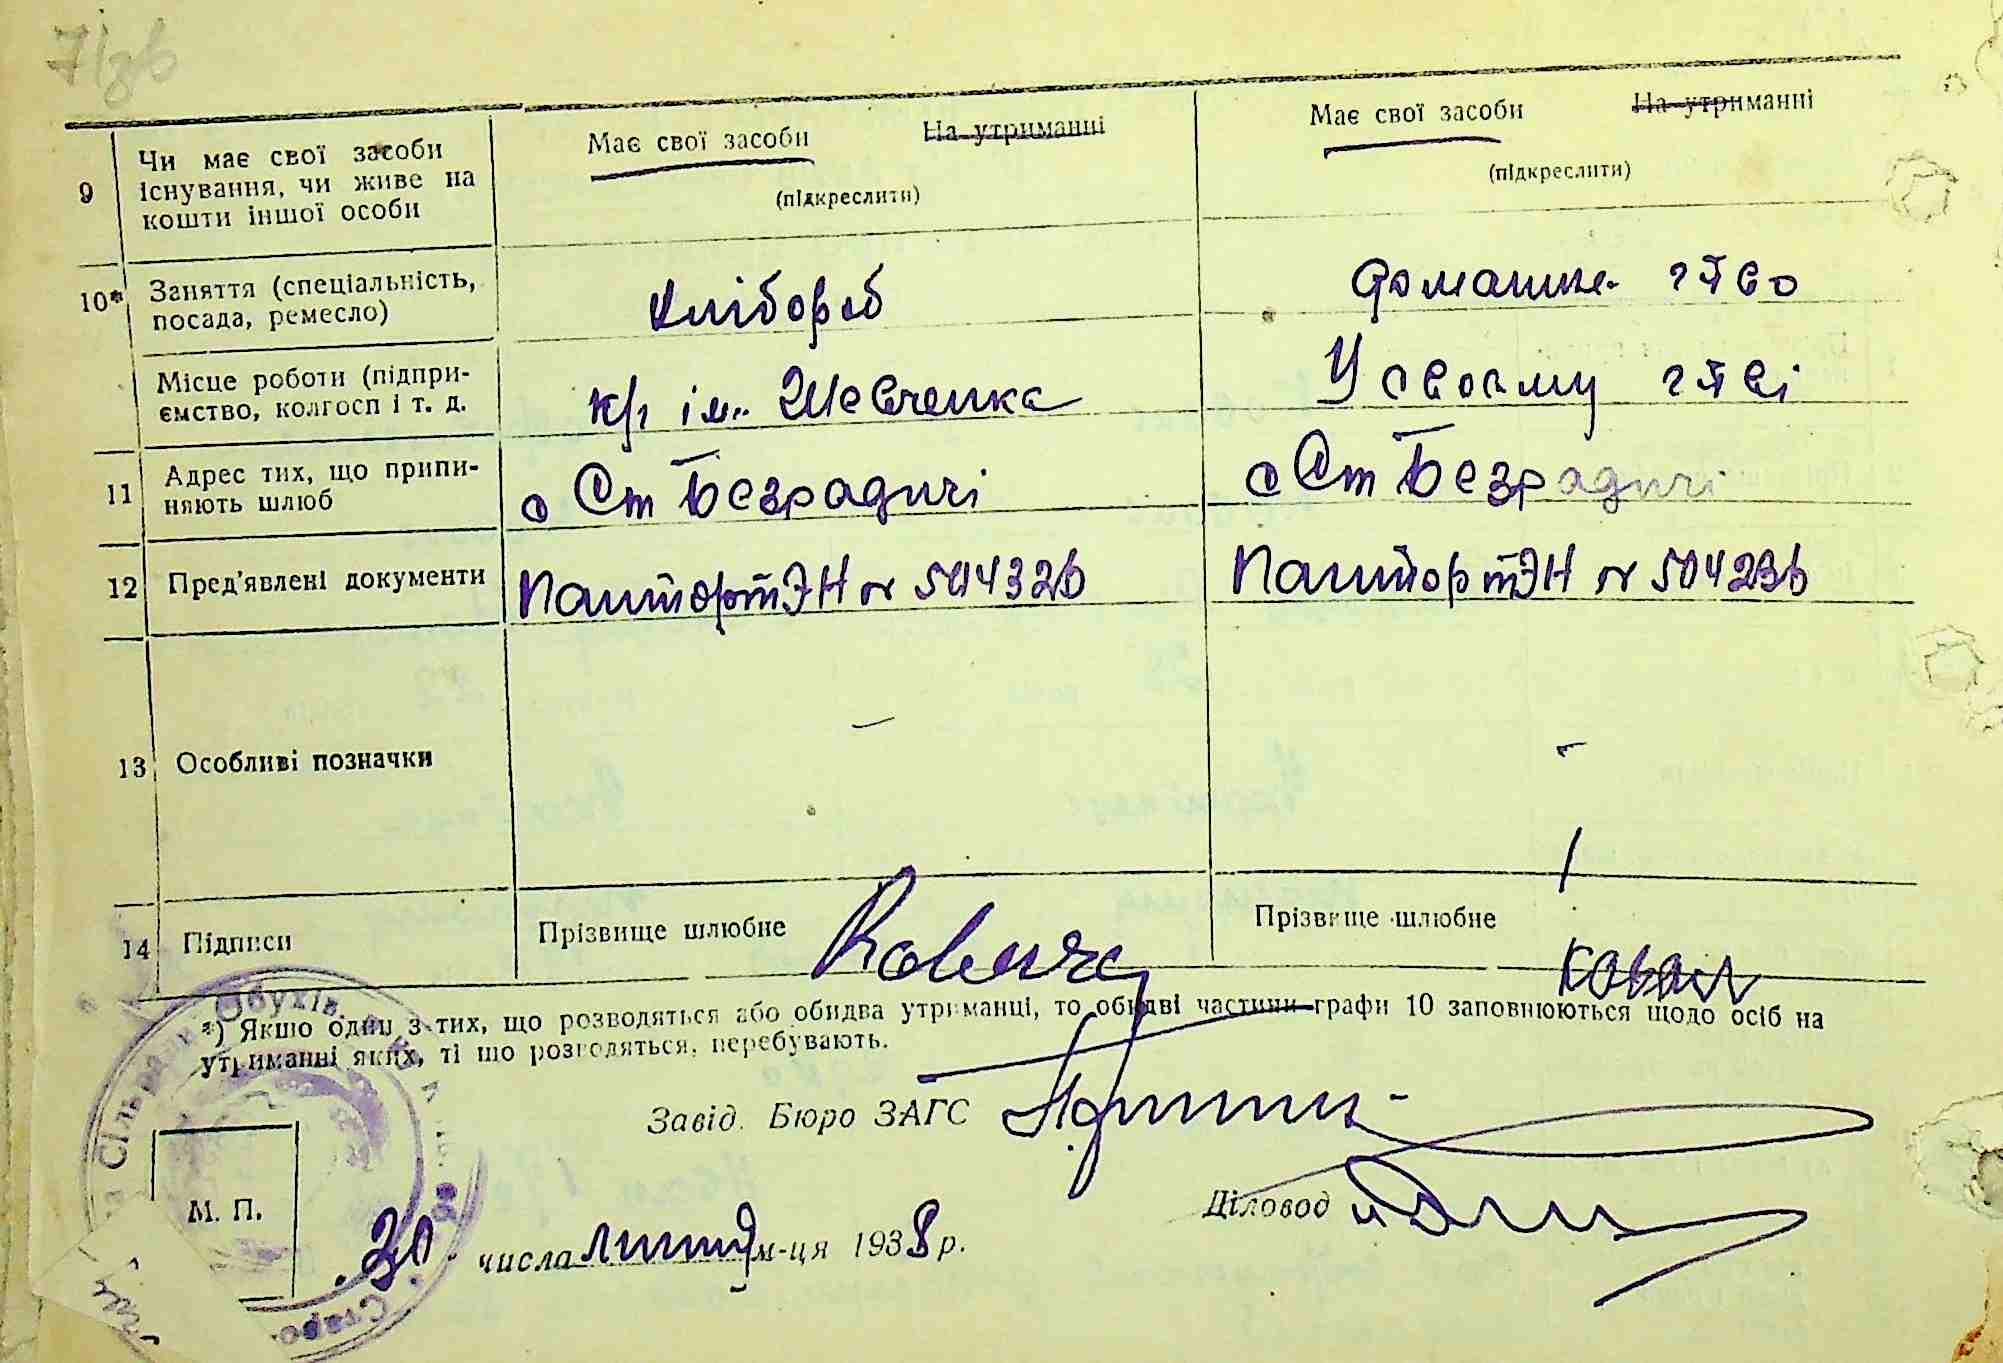 7/зв
Має свої засоби На утриманні Має свої засоби На утриманні
9 Чи має свої засоби існування, чи живе на кошти іншої особи
(підкреслити) (підкреслити)
10* Заняття (спеціальність, посада, ремесло) хлібороб домашнє г-тво
Місце роботи (підпри-
ємство, колгосп і т. д. к/г ім. Шевченка У своєму г-тві
11 Адрес тих, що припи-
няють шлюб с Ст Безрадичі с Ст Безрадичі
12 Пред'явлені документи Пашпорт ЭН № 504326 Пашпорт ЭН № 504236
13 Особливі позначки — -
14 Підписи Прізвище шлюбне Прізвище шлюбне Коваль
*) Якшо один з тих, що розводяться або обидва утриманці, то обидві частини графи 10 заповнюються щодо осіб на
утриманні яких, ті що розводяться, перебувають.
Завід. Бюро ЗАГС
Діловод
М. П.
30 числа липня м-ця 1938 р.
Сільрада Обухів.
Старо